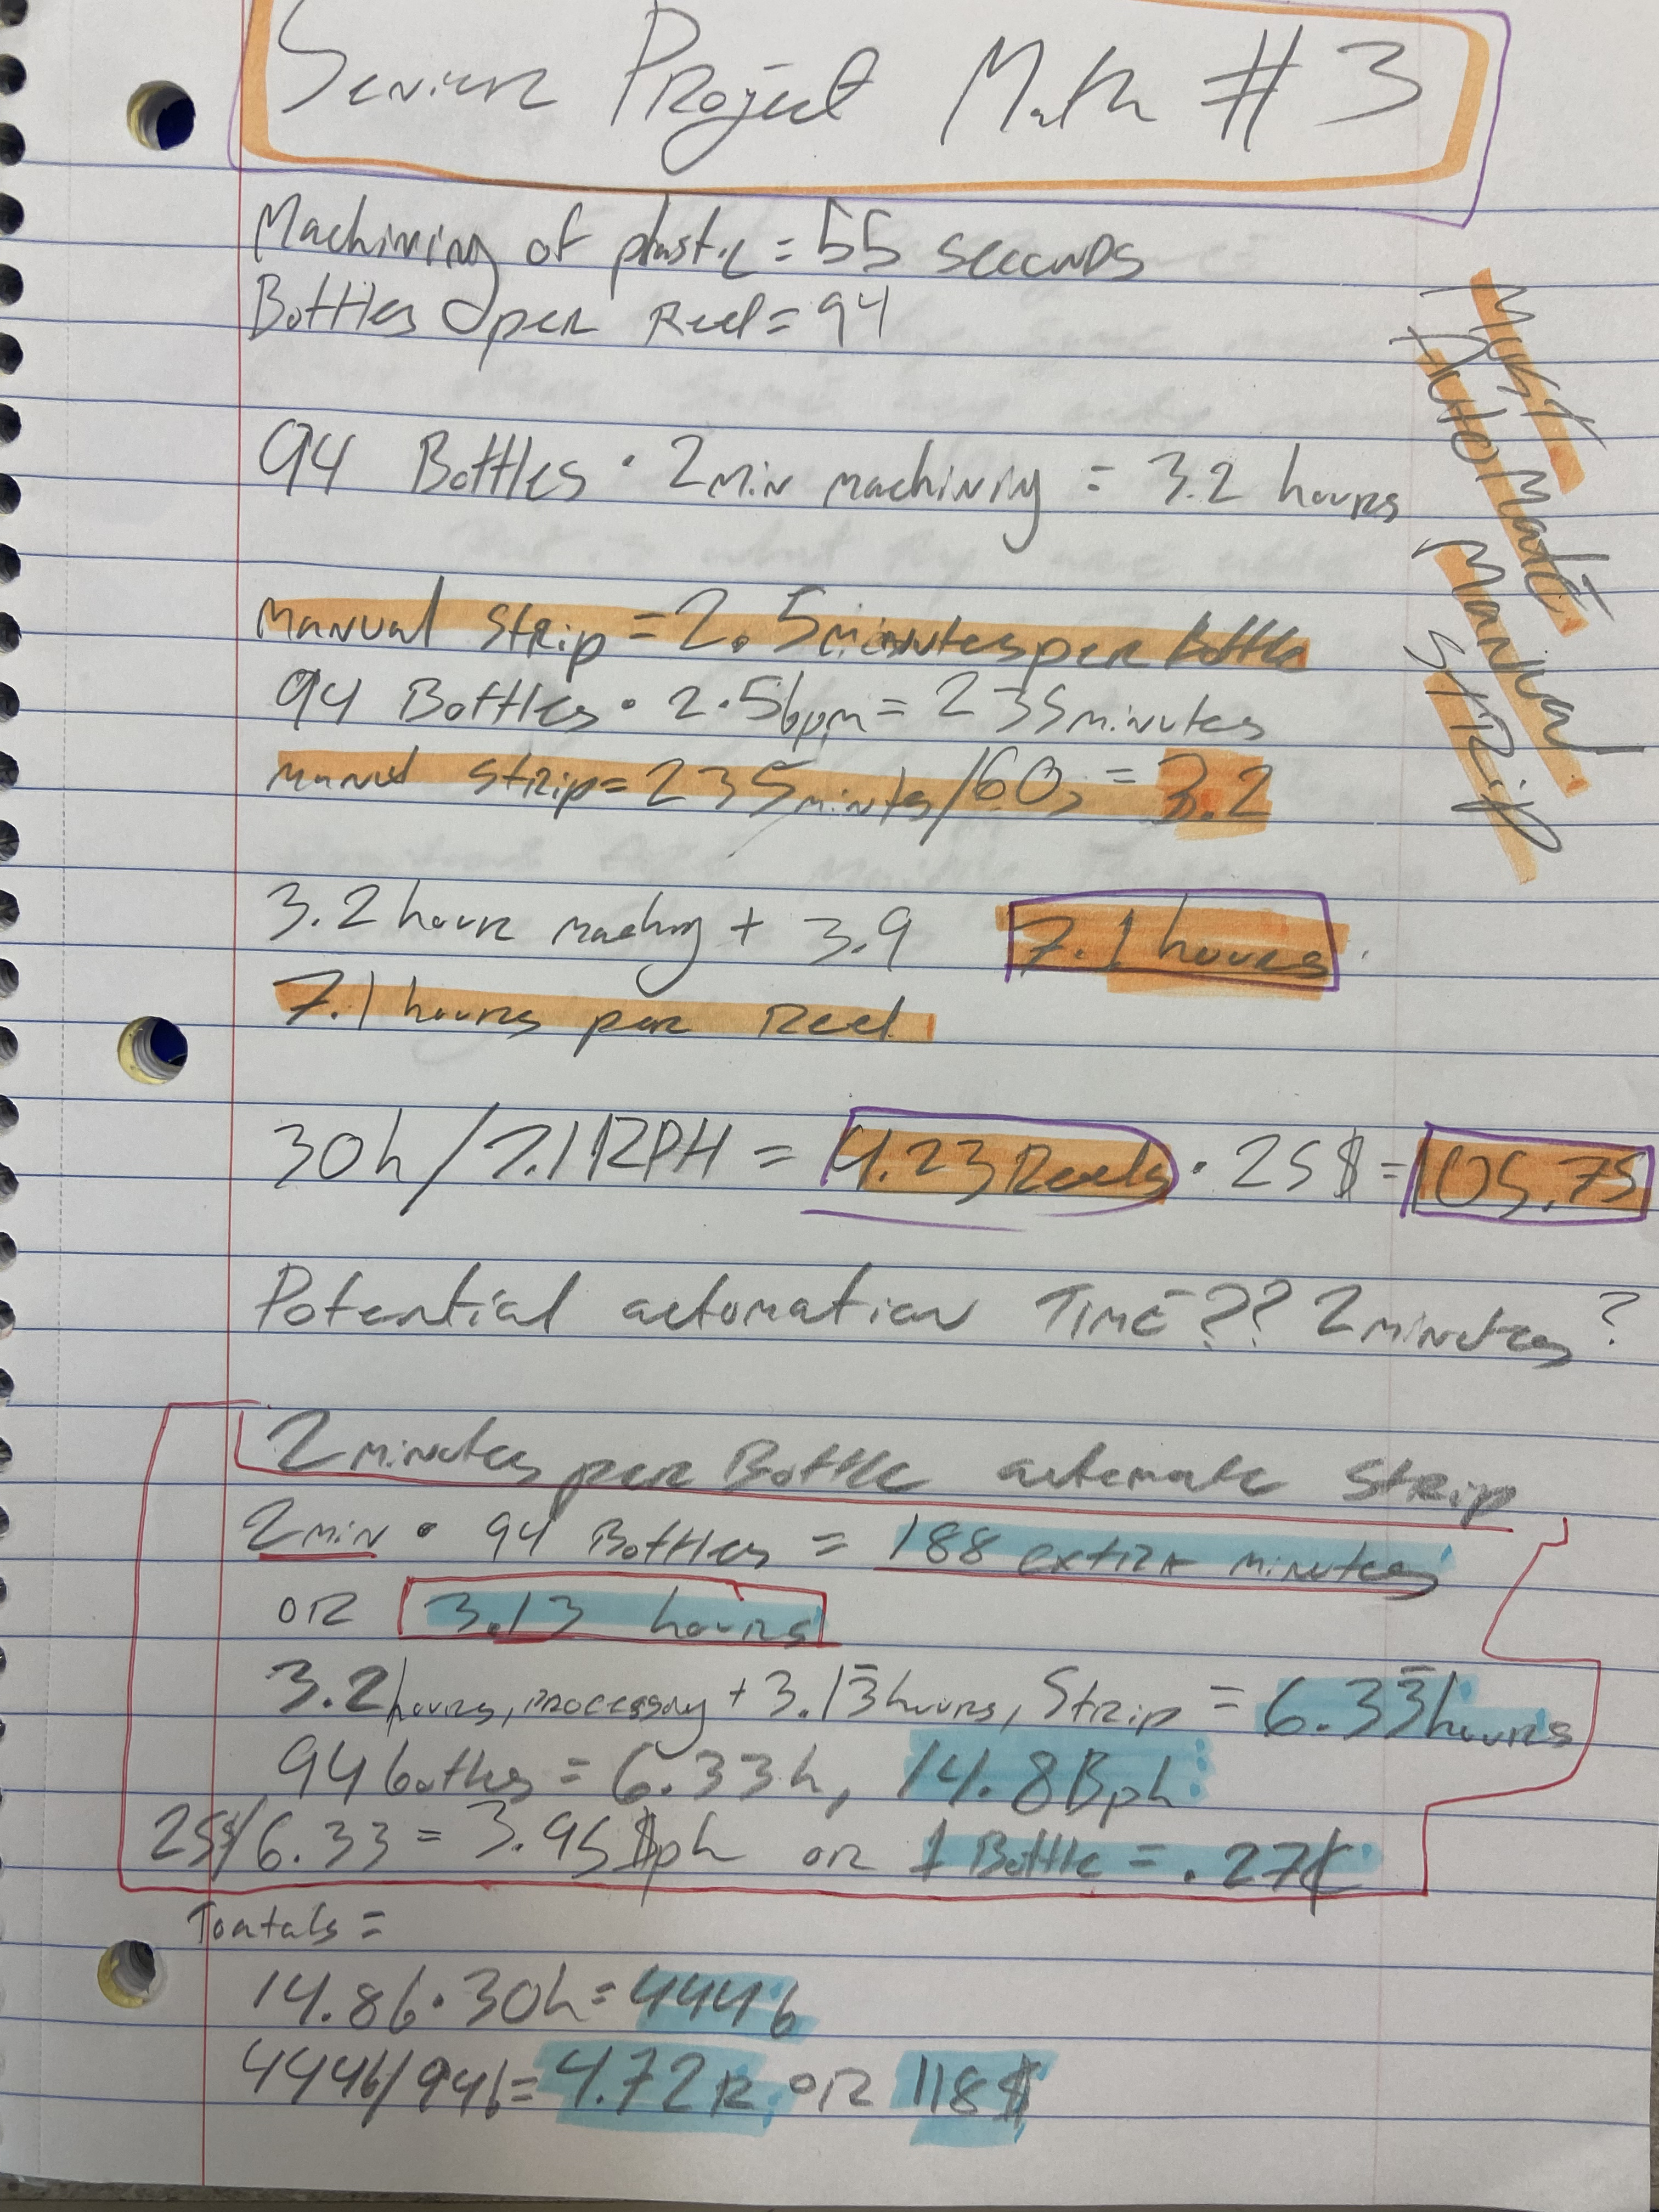 Senior Project Math #3
Machining of plastic = 55 seconds
Bottles per Reel = 94
94 Bottles · 2min machining = 3.2 hours
Must
Automate
Manual
Strip
Manual Strip = 2.5 minutes per Bottle
94 Bottles · 2.5bpm = 235 minutes
manual strip = 235 minutes/60s = 3.2
3.2 hour maching + 3.9 7.1 hours
7.1 hours per Reel
30h/7.1RPH = 4.23 Reels · 25$ = 105.75
Potential automation TIME?? 2 minutes?
2 minutes per Bottle automate Strip
2min · 94 Bottles = 188 extra minutes
OR 3.13 hours
3.2 hours, processing + 3.13 hours, Strip = 6.33 hours
94 bottles = 6.33h, 14.8Bph
25$/6.33 = 3.95$ph or 1 Bottle = .27¢
Toatals =
14.8b · 30h = 444b
444b/94b = 4.72R OR 118$